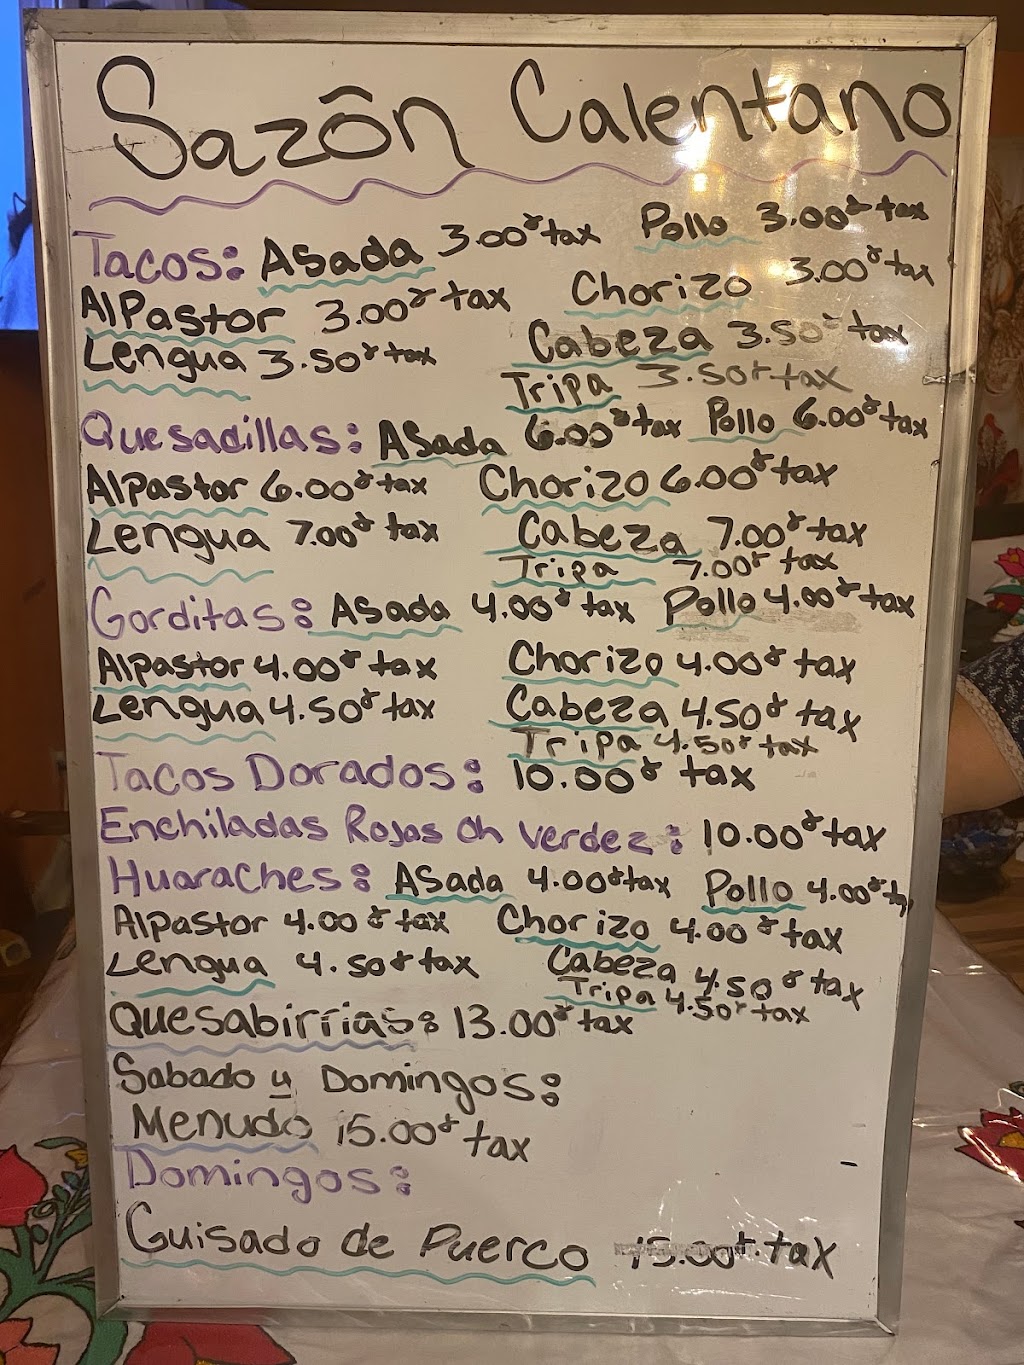 Sazôn Calentano
Tacos: Asada 3.00 + tax Pollo 3.00 + tax
AlPastor 3.00 + tax Chorizo 3.00 + tax
Lengua 3.50 + tax Cabeza 3.50 + tax
Tripa 3.50 + tax
Quesadillas: Asada 6.00 + tax Pollo 6.00 + tax
Alpastor 6.00 + tax Chorizo 6.00 + tax
Lengua 7.00 + tax Cabeza 7.00 + tax
Tripa 7.00 + tax
Gorditas: Asada 4.00 + tax Pollo 4.00 + tax
Alpastor 4.00 + tax Chorizo 4.00 + tax
Lengua 4.50 + tax Cabeza 4.50 + tax
Tripa 4.50 + tax
Tacos Dorados: 10.00 + tax
Enchiladas Rojas Oh verdez: 10.00 + tax
Huaraches: Asada 4.00 + tax Pollo 4.00 + tax
Alpastor 4.00 + tax Chorizo 4.00 + tax
Lengua 4.50 + tax Cabeza 4.50 + tax
Tripa 4.50 + tax
Quesabirrias: 13.00 + tax
Sabado y Domingos:
Menudo 15.00 + tax
Domingos:
Guisado de Puerco 15.00 + tax